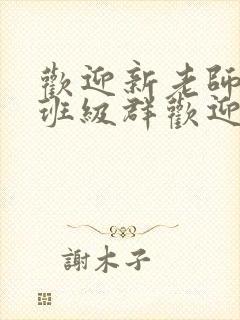 歡迎新老師
班級群歡迎
謝木子